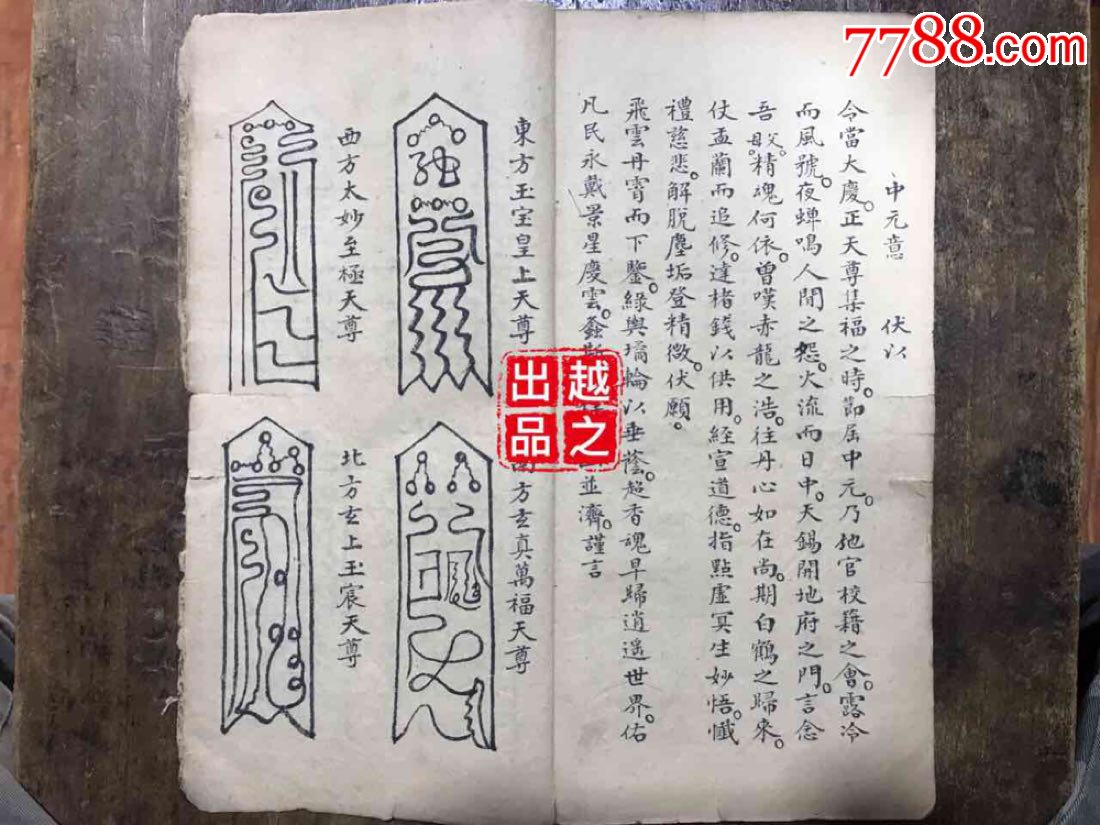 7788.com
中元意　伏以
令當大慶。正天尊集福之時。節屆中元。乃地官校籍之會。露冷
而風號。夜蟬鳴人間之怨。火流而日中。天錫開地府之門。言念
吾　精魂何依。曾嘆赤龍之浩。往丹心如在。尚期白鶴之歸來。
仗盂蘭而追修。達楮錢以供用。経宣道德。指點虛冥生妙悟。懺
禮慈悲。解脫塵垢登精微。伏願。
飛雲丹霄而下鑒。綠輿璚輪以垂蔭。超香魂早歸逍遥世界。佑
凡民永戴景星慶雲。螽斯並濟。謹言
越之
出品
東方玉宝皇上天尊
南方玄真萬福天尊
西方太妙至極天尊
北方玄上玉宸天尊